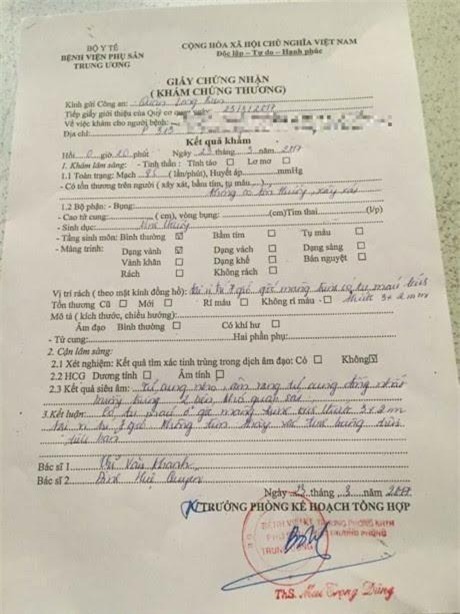 BỘ Y TẾ
BỆNH VIỆN PHỤ SẢN
TRUNG ƯƠNG
CỘNG HÒA XÃ HỘI CHỦ NGHĨA VIỆT NAM
Độc lập - Tự do - Hạnh phúc
GIẤY CHỨNG NHẬN
( KHÁM CHỨNG THƯƠNG)
Kính gửi Công an: Quận Long Biên
Tiếp giấy giới thiệu của Quý cơ quan ngày
Về việc khám cho người bệnh:
Địa chỉ:
Kết quả khám
Hồi 0 giờ 20 phút Ngày 23 tháng 3 năm 2017
1. Khám lâm sàng: - Tinh thần: Tỉnh táo Lơ mơ
1.1 Toàn trạng: Mạch 85 ( lần/phút), Huyết áp mmHg
- Có tổn thương trên người ( xây xát, bầm tím, tụ máu )
1.2 Bộ phận: - Bụng:
- Cao tử cung: ( cm), vòng bụng: (cm)Tim thai (l/p)
- Sinh dục:
- Tầng sinh môn: Bình thường Bầm tím Tụ máu
- Màng trinh: Dạng vành Dạng vách Dạng sàng
Vành khăn Dạng khế Bán nguyệt
Rách Không rách
Vị trí rách ( theo mặt kính đồng hồ): tại vị trí 7 giờ gốc màng trinh có tụ máu kích
thước 3x2mm
Tổn thương Cũ Mới Rỉ máu Không rỉ máu
Mô tả ( kích thước, chiều hướng):
Âm đạo Bình thường Có khí hư
- Tử cung: Hai phần phụ:
2. Cận lâm sàng:
2.1 Xét nghiệm: Kết quả tìm xác tinh trùng trong dịch âm đạo: Có Không
2.2 HCG Dương tính Âm tính
2.3 Kết quả siêu âm: Tử cung âm vang tử cung đồng nhất
buồng trứng 2 bên khó quan sát
3.Kết luận: Có tụ máu ở gốc màng trinh kích thước 3x2m
tại vị trí 7 giờ. Không tìm thấy xác tinh trùng trên
tiêu bản
Bác sĩ 1
Bác sĩ 2
Ngày 23 tháng 3 năm 2017
TRƯỞNG PHÒNG KẾ HOẠCH TỔNG HỢP
ThS. Mai Trọng Dũng